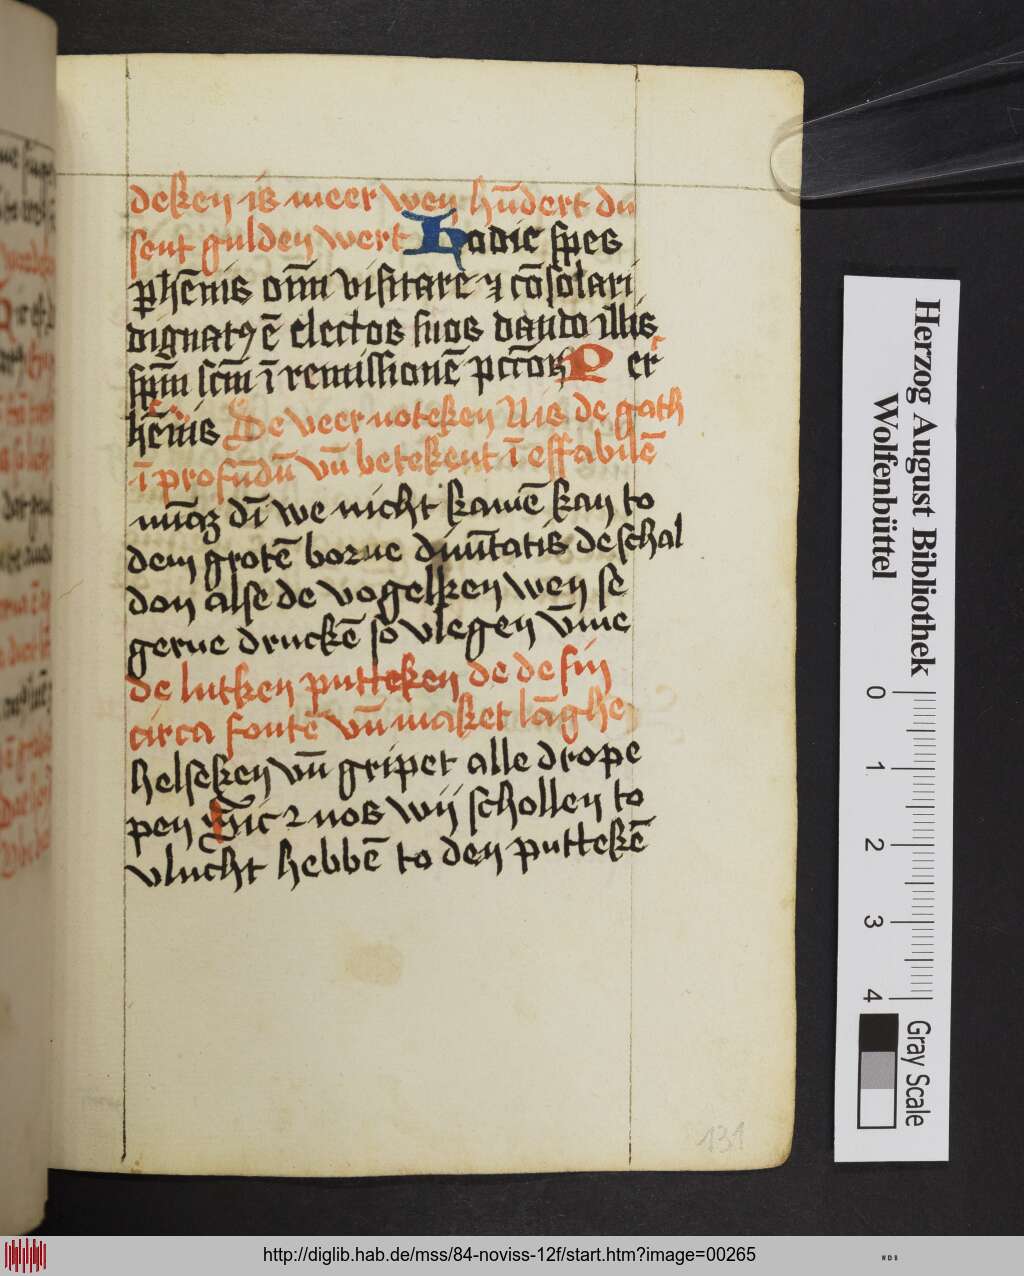 deken is meer wen hūdert du
sent gulden wert Hodie spes
phēnis om̄ visitare ⁊ cōsolari
dignatꝰ ē electos suos dando illis
sp̄m scm̄ ī remissionē pctōꝝ P er
hēnis De veer noteken Nis de gath
ī profūdū vn̄ betekent ī effabilē
dī we nicht kamē kan to
dem grotē borne diuītatis de schal
don alse de vogelken wen se
gerne drinckē so vlegen vm̄e
de lutken putteken de de sin
circa fontē vn̄ maket lāghe
helseken vn̄ gripet alle drope
pen Sic ⁊ nos wij schollen to
vlucht hebbē to den puttekē
131
Herzog August Bibliothek
Wolfenbüttel
0 1 2 3 4
Gray Scale
http://diglib.hab.de/mss/84-noviss-12f/start.htm?image=00265